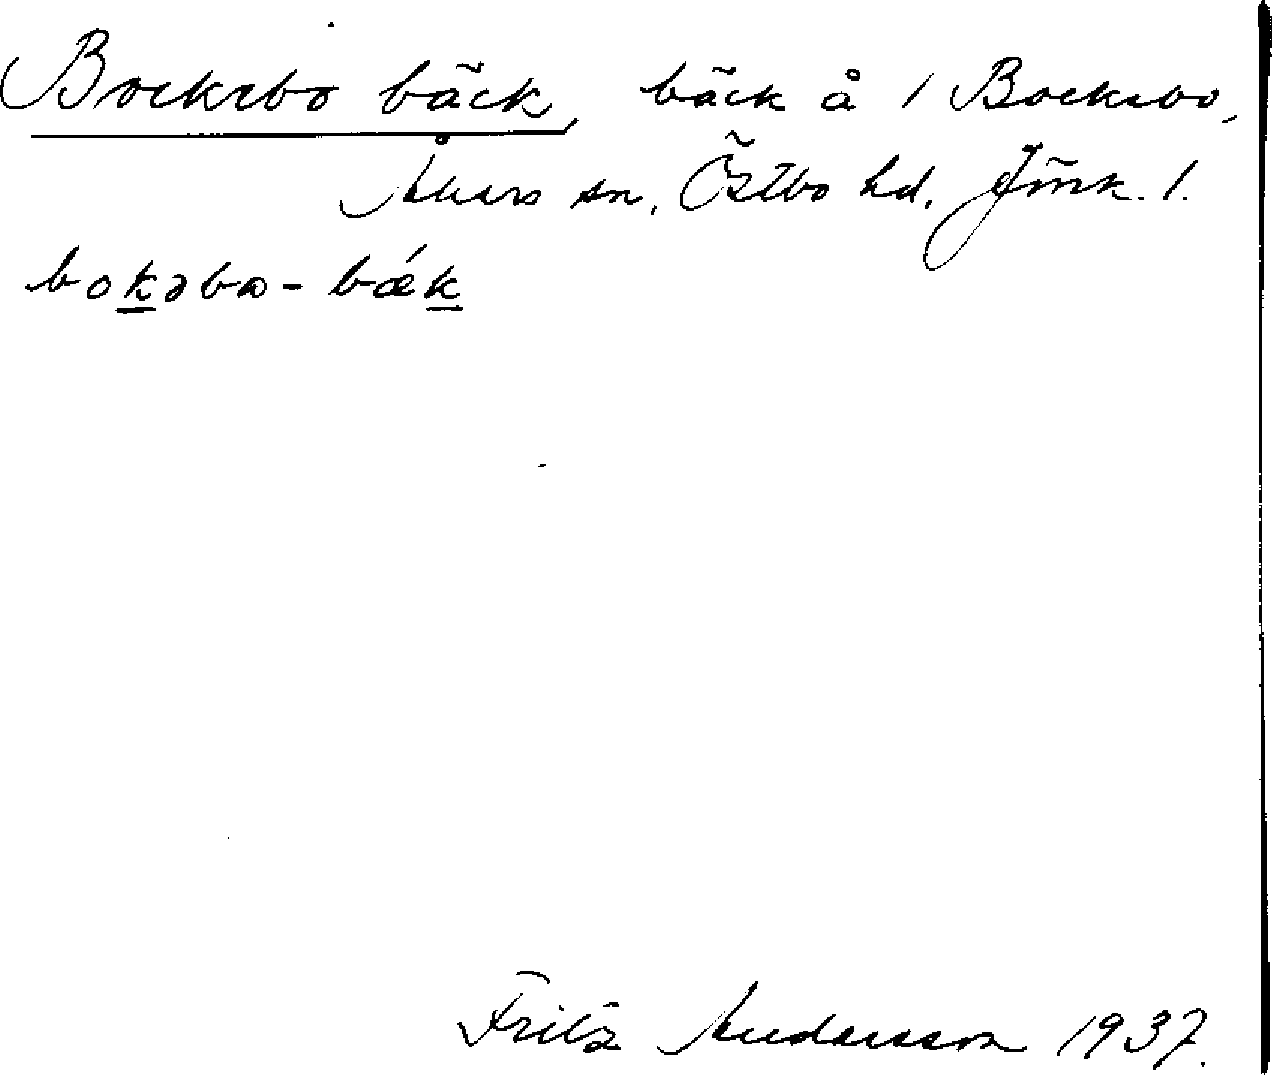 Bocksbo bäck, bäck å 1 Bocksbo,
Åkers sn, Östbo hd. Jönk. l.
bokəbω-bǽk
Fritz Andersson 1937.